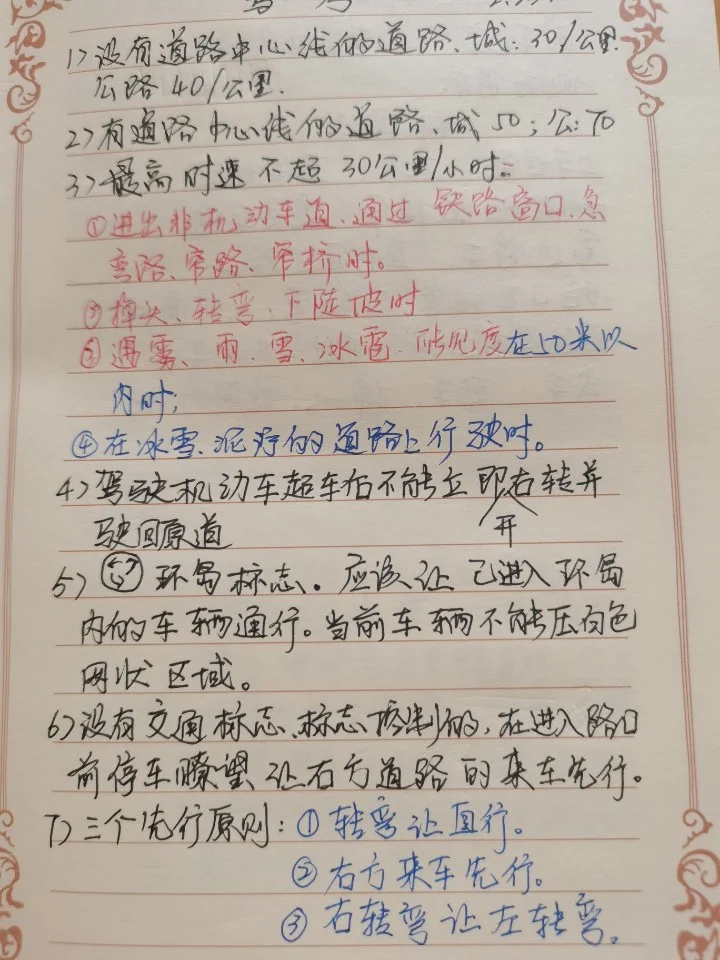 1）没有道路中心线的道路、城：30/公里
公路 40/公里.
2）有道路中心线的道路、城50；公：70
3）最高时速不超 30公里/小时：
①进出非机动车道、通过 铁路窗口、急
弯路、窄路、窄桥时。
②掉头、转弯、下陡坡时
③遇雾、雨、雪、冰雹、能见度在50米以
内时；
④在冰雪、泥泞的道路上行驶时。
4）驾驶机动车超车后不能立即右转并
开
驶回原道
5） 环岛标志。应该让已进入环岛
内的车辆通行。当前车辆不能压白色
网状区域。
6）没有交通标志、标志控制的，在进入路口
前停车瞭望让右方道路的来车先行。
7）三个先行原则：①转弯让直行。
②右方来车先行。
③右转弯让左转弯。